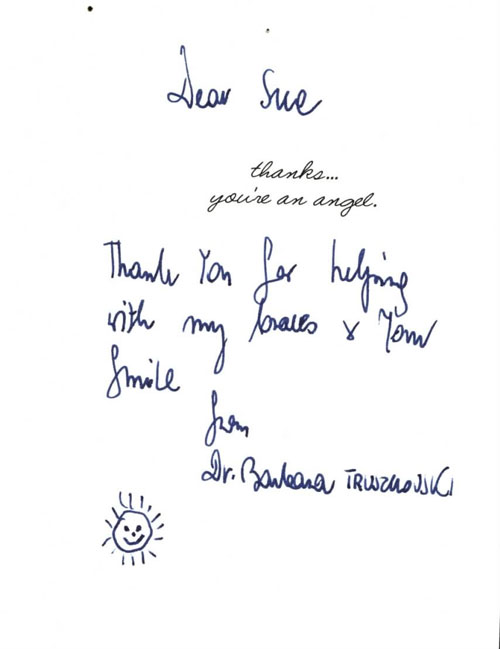 Dear Sue
thanks...
you're an angel.
Thank You for helping
with my braces & Your
Smile
from
Dr. Barbara